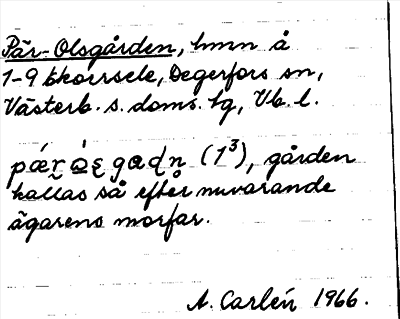 Pär-Olsgården, hmn å
1-9 Ekorrsele, Degerfors sn,
Västerb. s. doms. tg, Vb. l.
(1³), gården
kallas så efter nuvarande
ägarens morfar.
A. Carlén 1966.